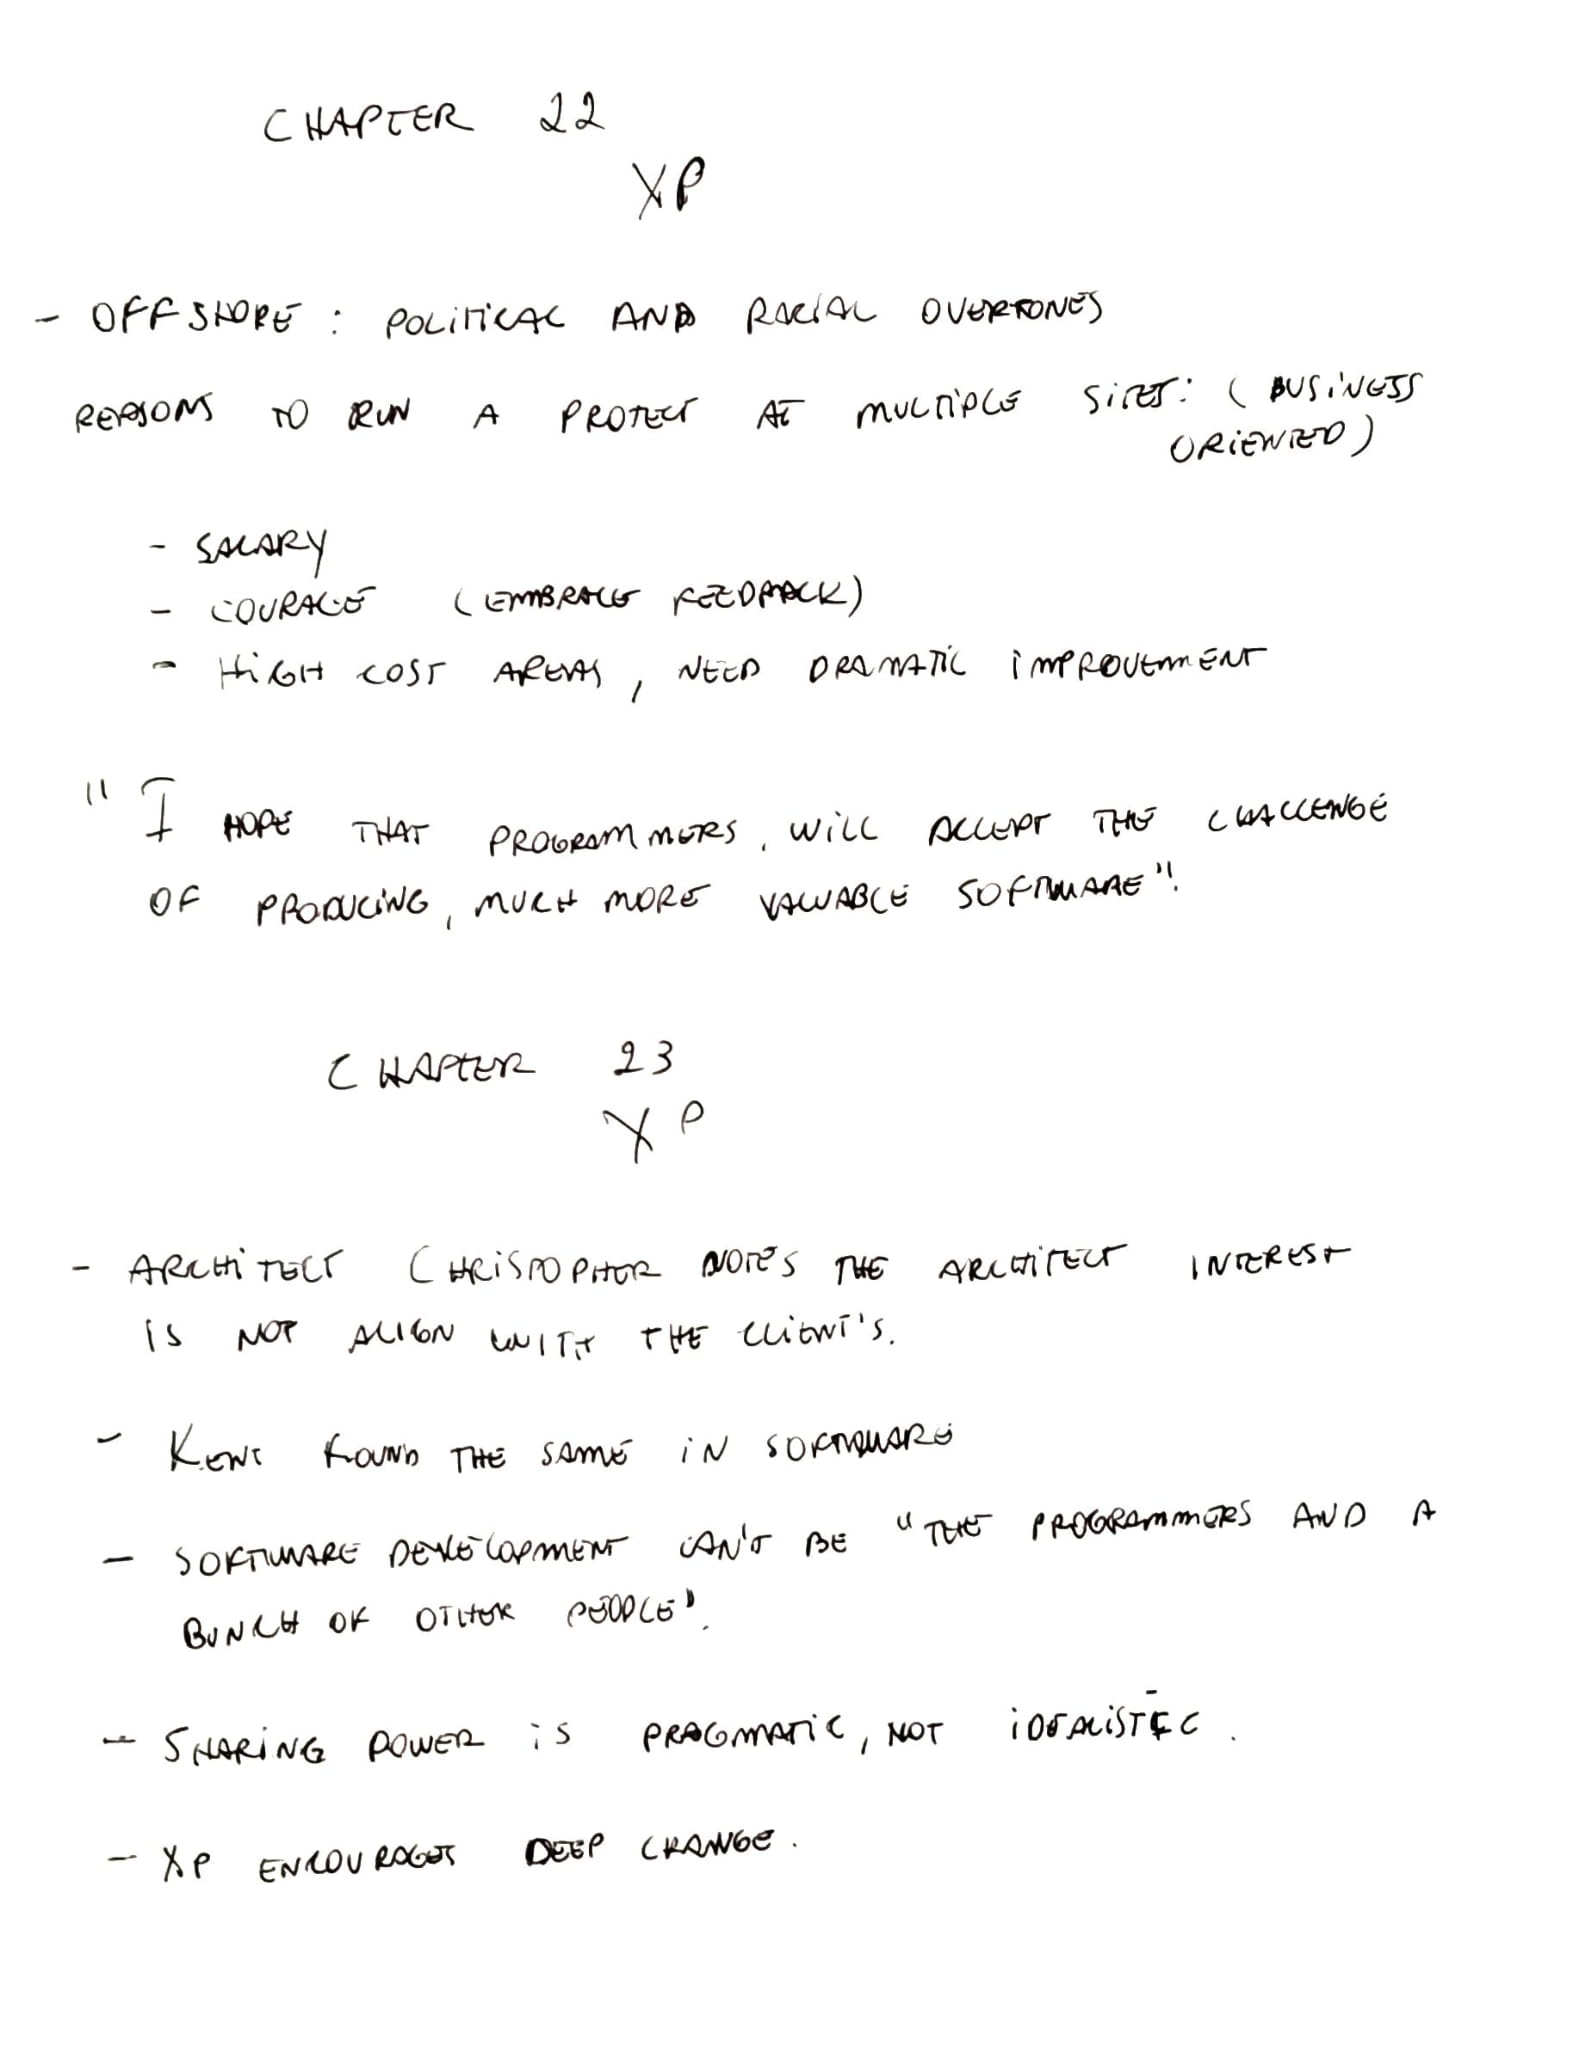 CHAPTER 22
XP
- OFFSHORE : POLITICAL AND RACIAL OVERTONES
REASONS TO RUN A PROJECT AT MULTIPLE SITES: (BUSINESS
ORIENTED)
- SALARY
- COURAGE (EMBRACE FEEDBACK)
- HIGH COST AREAS, NEED DRAMATIC IMPROVEMENT
"I HOPE THAT PROGRAMMERS, WILL ACCEPT THE CHALLENGE
OF PRODUCING, MUCH MORE VALUABLE SOFTWARE".
CHAPTER 23
XP
- ARCHITECT CHRISTOPHER NOTES THE ARCHITECT INTEREST
IS NOT ALIGN WITH THE CLIENT'S.
- KENT FOUND THE SAME IN SOFTWARE
- SOFTWARE DEVELOPMENT CAN'T BE "THE PROGRAMMERS AND A
BUNCH OF OTHER PEOPLE".
- SHARING POWER IS PRAGMATIC, NOT IDEALISTIC.
- XP ENCOURAGES DEEP CHANGE.